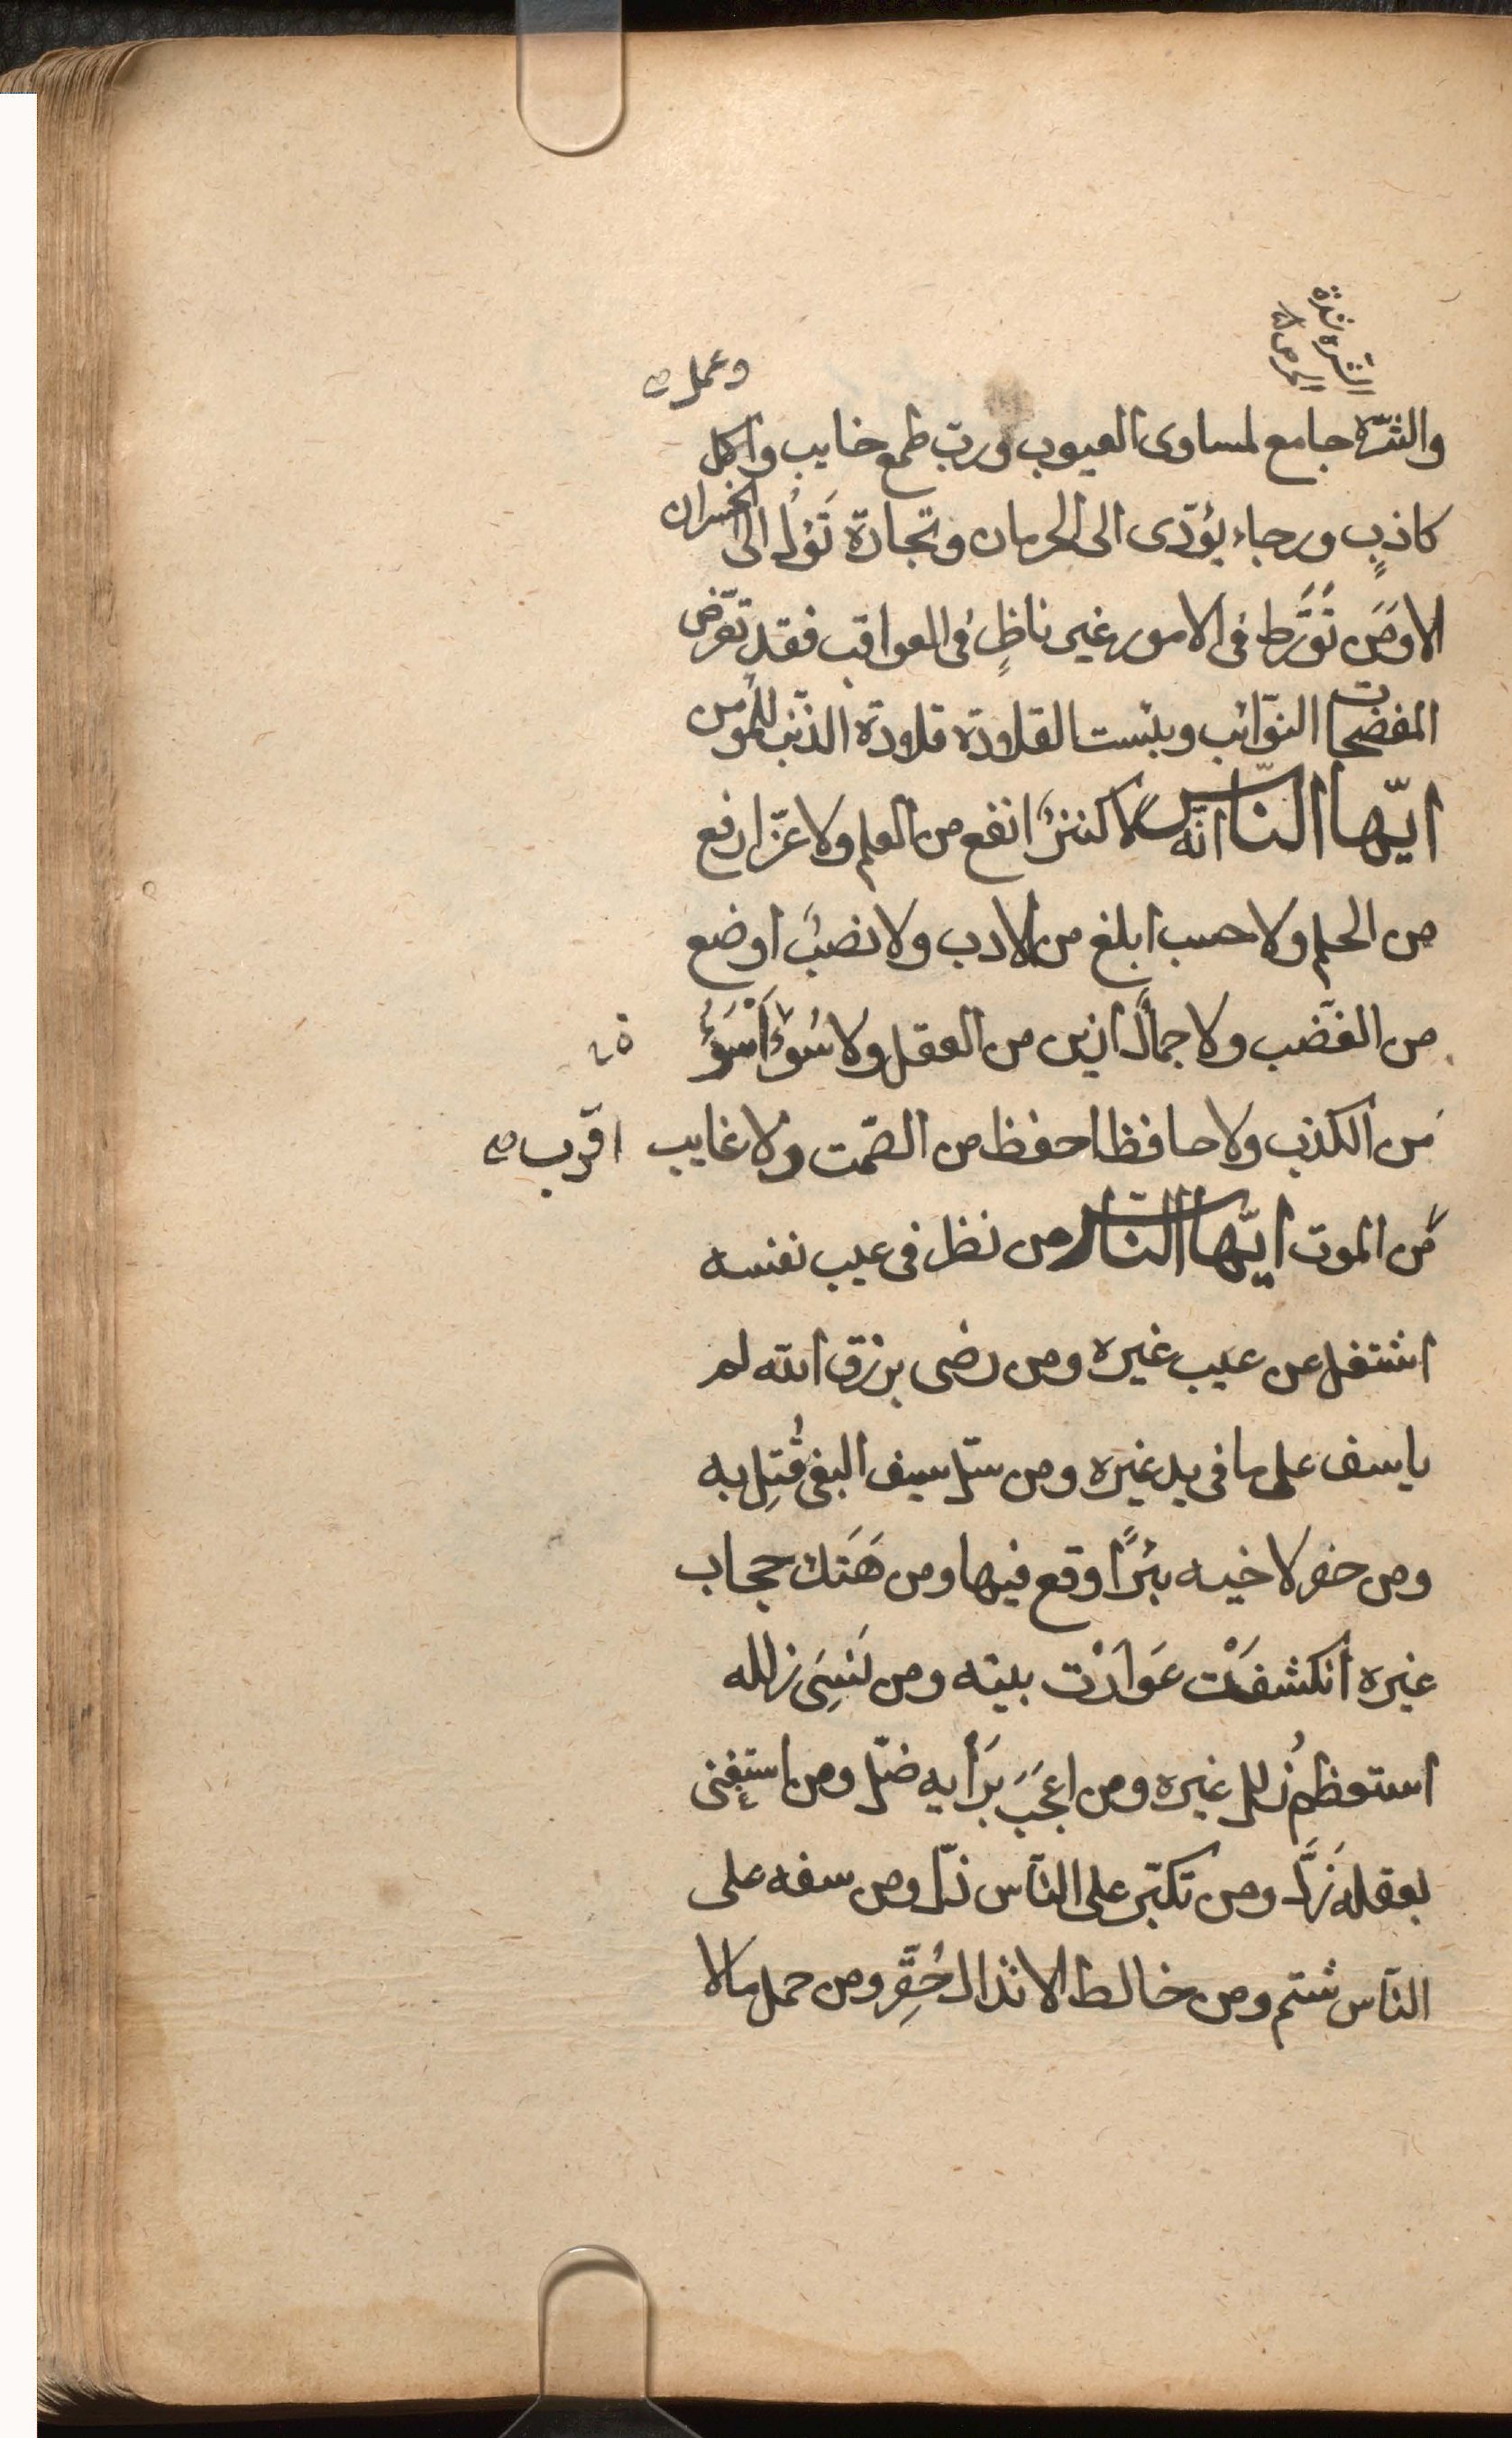 الشره شدة
الحرص
وعمل صح
والشّره جامع لمساوى العيوب وربّ طمع خايب واكل
كاذبٍ ورجاء يؤدّى الى الحرمان وتجارة تَؤلُ الى الخسران
الا ومَن تَوَّرط فى الامور غير ناظرٍ فى العواقب فقد تعرّض
المفضحات النوّائب وبئست القلادة قلادة الذّنب للمؤمن
ايّها النّاس انّه لا كنزٌ انفع من العلم ولا عزّ ارفع
من الحلم ولا حسب ابلغ من الادب ولا نصبٌ اوضع
من الغضب ولا جمالٌ ازين من العقل ولا سُوْءٌ اَسْوَءُ
من الكذب ولا حافظ احفظ من الصّمت ولا غايب اقرب صح
من الموت ايّها النّاس من نظر فى عيب نفسه
اشتغل عن عيب غيره ومن رضى برزق الله لم
ياسف على ما فى يد غيره ومن سلّ سيف البغى قُتِل به
ومن حفر لاخيه بئرًا وقع فيها ومن هَتَك حجاب
غيره انكشفَتْ عَوارت بيته ومن نَسِىَ زلله
استعظم زلل غيره ومن اعجَبَ بَرَأيه ضلّ ومن استغنى
بعقله زَلَّ ومن تكبّر على النّاس ذلّ ومن سفه على
النّاس شتم ومن خالط الانذال حُقِّر ومن حمل ما لا